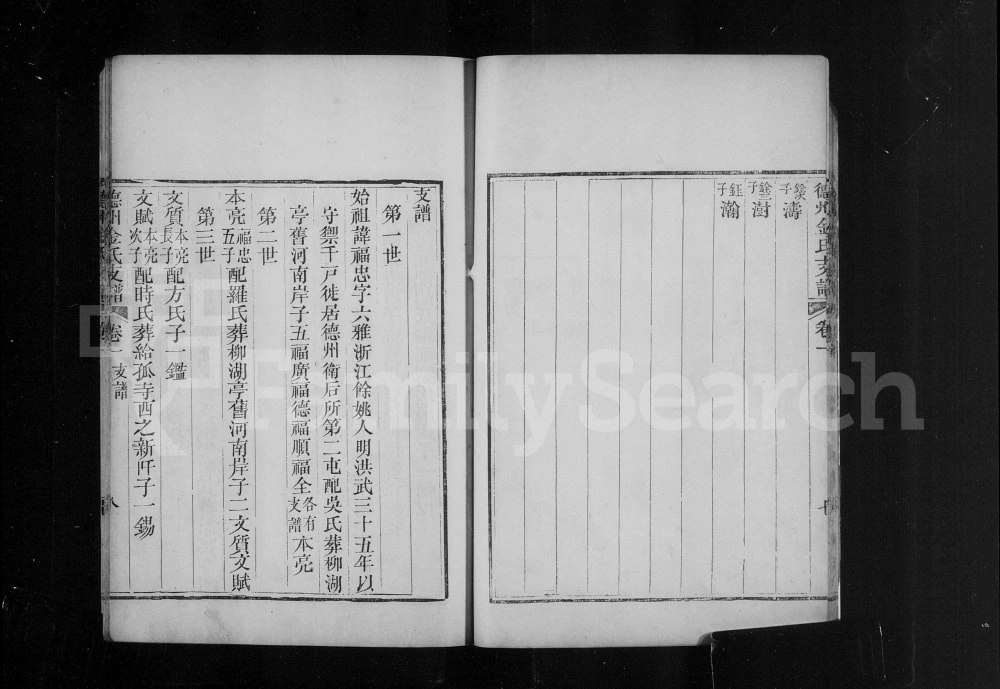 德州金氏支譜 卷一
濤 鑅子
澍 銓三子
瀚 鈺子
支譜
第一世
始祖諱福忠字六雅浙江餘姚人明洪武三十五年以
守禦千戸徙居德州衛后所第二屯配吳氏葬柳湖
亭舊河南岸子五福廣福德福順福全各有支譜本亮
第二世
本亮福忠五子配羅氏葬柳湖亭舊河南岸子二文質文賦
第三世
文質本亮長子配方氏子一鑑
文賦本亮次子配時氏葬給孤寺西之新阡子一錫
德州金氏支譜 卷一 支譜 八
FamilySearch